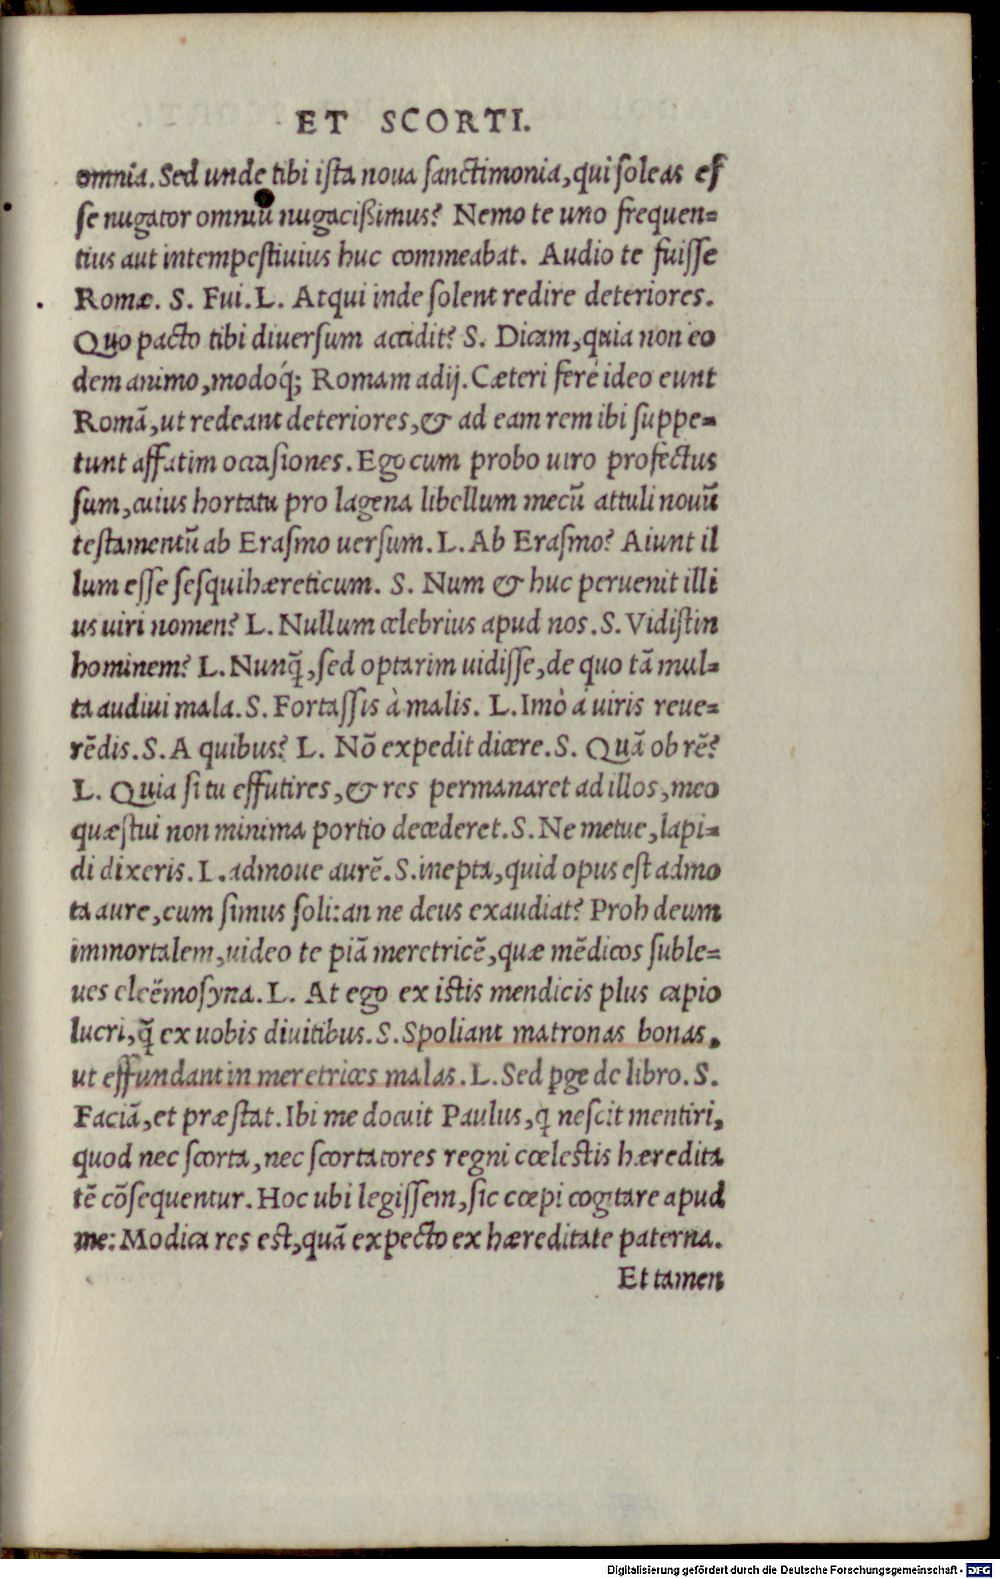 ET SCORTI.
omnia. Sed unde tibi ista noua sanctimonia, qui soleas es
se nugator omniũ nugacißimus? Nemo te uno frequen=
tius aut intempestiuius huc commeabat. Audio te fuisse
Romæ. S. Fui. L. Atqui inde solent redire deteriores.
Quo pacto tibi diuersum accidit? S. Dicam, quia non eo
dem animo, modoq́; Romam adij. Cæteri ferè ideo eunt
Romã, ut redeant deteriores, & ad eam rem ibi suppe=
tunt affatim occasiones. Ego cum probo uiro profectus
sum, cuius hortatu pro lagena libellum mecũ attuli nouũ
testamentũ ab Erasmo uersum. L. Ab Erasmo? Aiunt il
lum esse sesquihæreticum. S. Num & huc peruenit illi
us uiri nomen? L. Nullum celebrius apud nos. S. Vidistin
hominem? L. Nunq̃, sed optarim uidisse, de quo tã mul=
ta audiui mala. S. Fortassis à malis. L. Imò à uiris reue=
rẽdis. S. A quibus? L. Nõ expedit dicere. S. Quã ob rẽ?
L. Quia si tu effutires, & res permanaret ad illos, meo
quæstui non minima portio decederet. S. Ne metue, lapi=
di dixeris. L. admoue aurẽ. S. inepta, quid opus est admo
ta aure, cum simus soli: an ne deus exaudiat? Proh deum
immortalem, uideo te piã meretricẽ, quæ mẽdicos suble=
ues eleëmosyna. L. At ego ex istis mendicis plus capio
lucri, q̃ ex uobis diuitibus. S. Spoliant matronas bonas,
ut effundant in meretrices malas. L. Sed ꝑge de libro. S.
Faciã, et præstat. Ibi me docuit Paulus, q̣ nescit mentiri,
quod nec scorta, nec scortatores regni cœlestis hæredita
tẽ cõsequentur. Hoc ubi legissem, sic cœpi cogitare apud
me: Modica res est, quã expecto ex hæreditate paterna.
Et tamen
Digitalisierung gefördert durch die Deutsche Forschungsgemeinschaft - DFG